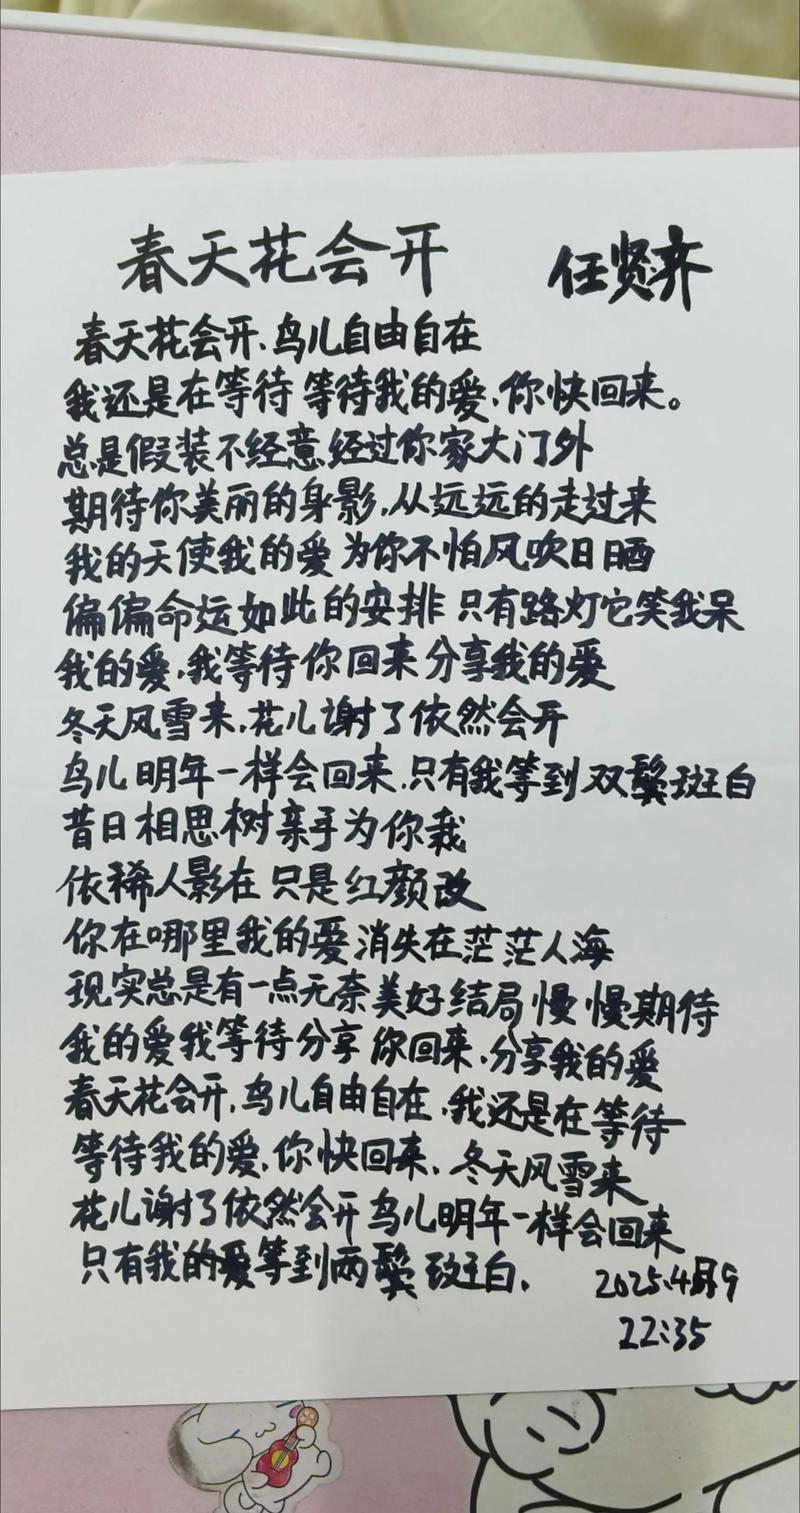 春天花会开 任贤齐
春天花会开、鸟儿自由自在
我还是在等待 等待我的爱,你快回来。
总是假装不经意经过你家大门外
期待你美丽的身影,从远远的走过来
我的天使我的爱 为你不怕风吹日晒
偏偏命运如此的安排 只有路灯它笑我呆
我的爱,我等待你回来分享我的爱
冬天风雪来,花儿谢了依然会开
鸟儿明年一样会回来,只有我等到双鬓斑白
昔日相思树亲手为你栽
依稀人影在 只是红颜改
你在哪里我的爱消失在茫茫人海
现实总是有一点无奈美好结局慢慢期待
我的爱我等待分享你回来,分享我的爱
春天花会开,鸟儿自由自在,我还是在等待
等待我的爱,你快回来,冬天风雪来
花儿谢了依然会开鸟儿明年一样会回来
只有我的爱等到两鬓斑白,
2025.4月9
22:35